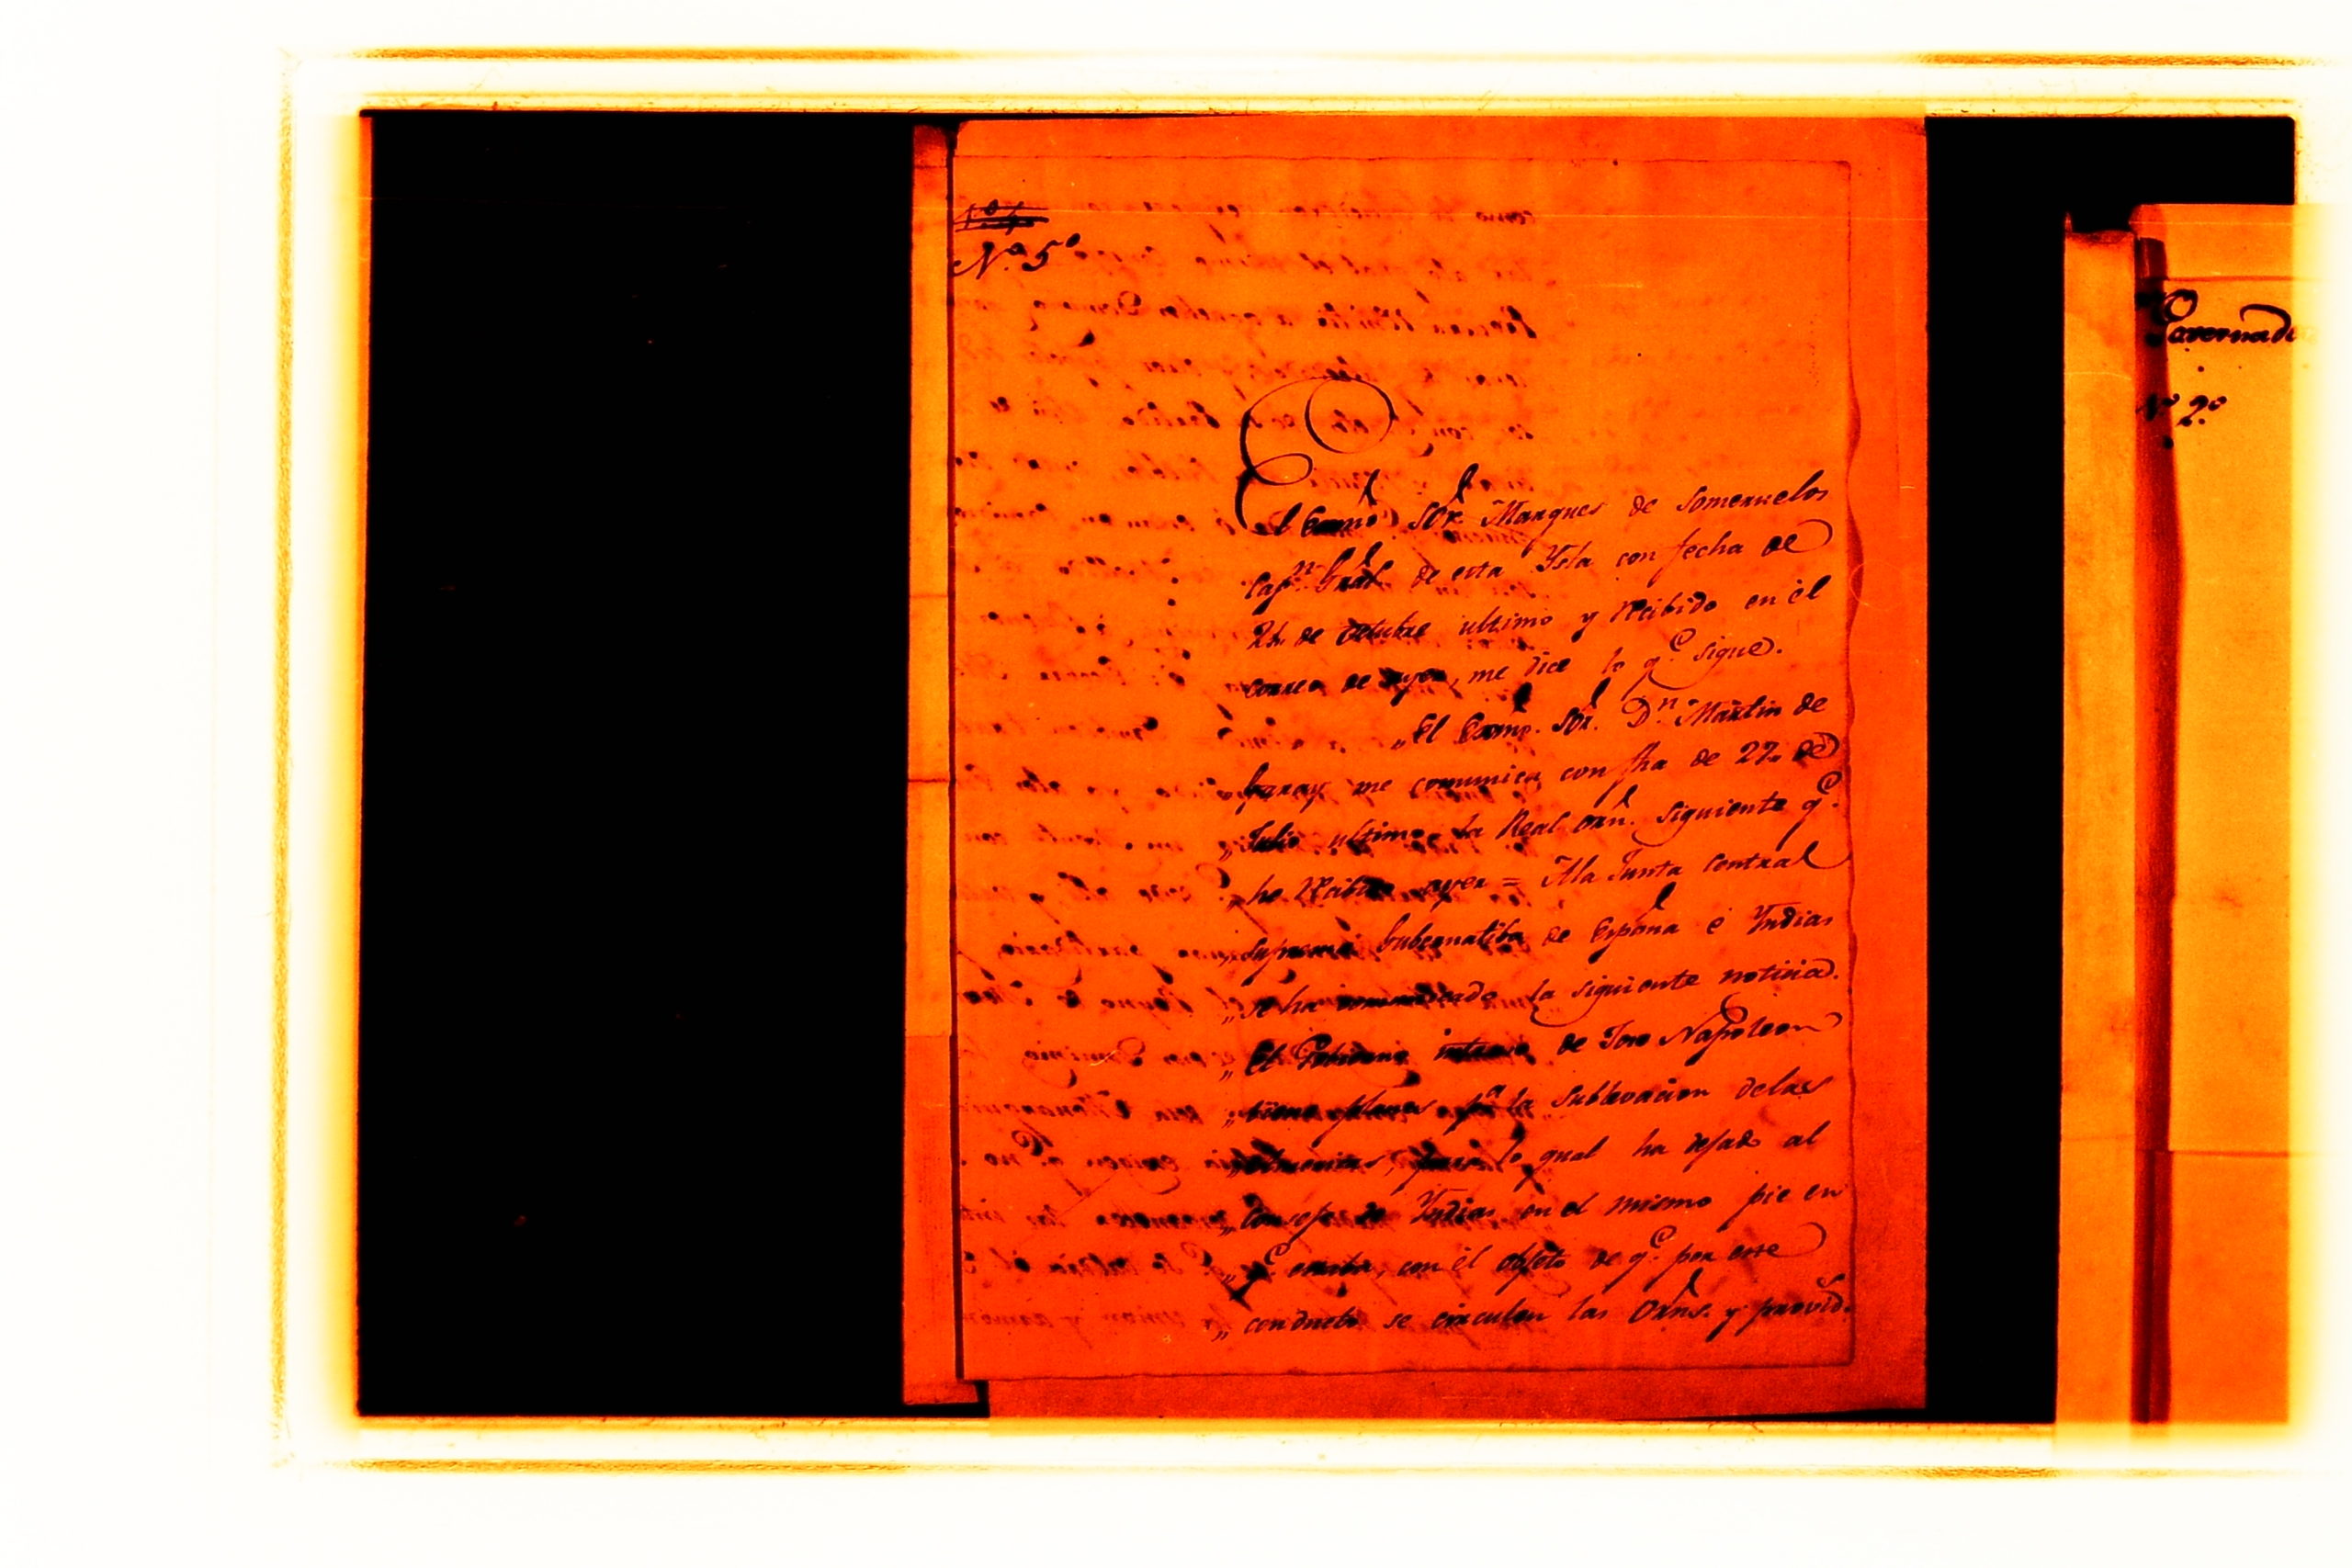 Nº 5º
El Exmo Sor Marques de Someruelos
Capn Gral de esta Ysla con fecha de
24 de Octubre ultimo y Recibido en el
correo de ayer, me dice lo qe sigue.
„El Exmo. Sor. Dn Martin de
Garay me comunica con fha de 27 de
„Julio ultimo la Real orn. siguiente qe.
„he Recibido ayer = A la Junta Central
„Suprema Gubernatiba de España é Yndias
„se ha comunicado la siguiente noticia.
„El Govierno intruso de Jose Napoleon
„tiene planes pa la sublevacion delas
„Americas, para lo qual ha dejado al
„Consejo de Yndias en el mismo pie en
„qe. estaba, con el objeto de qe. por este
„conducto se circulen las Orns. y provids.
Governad
Nº 2º